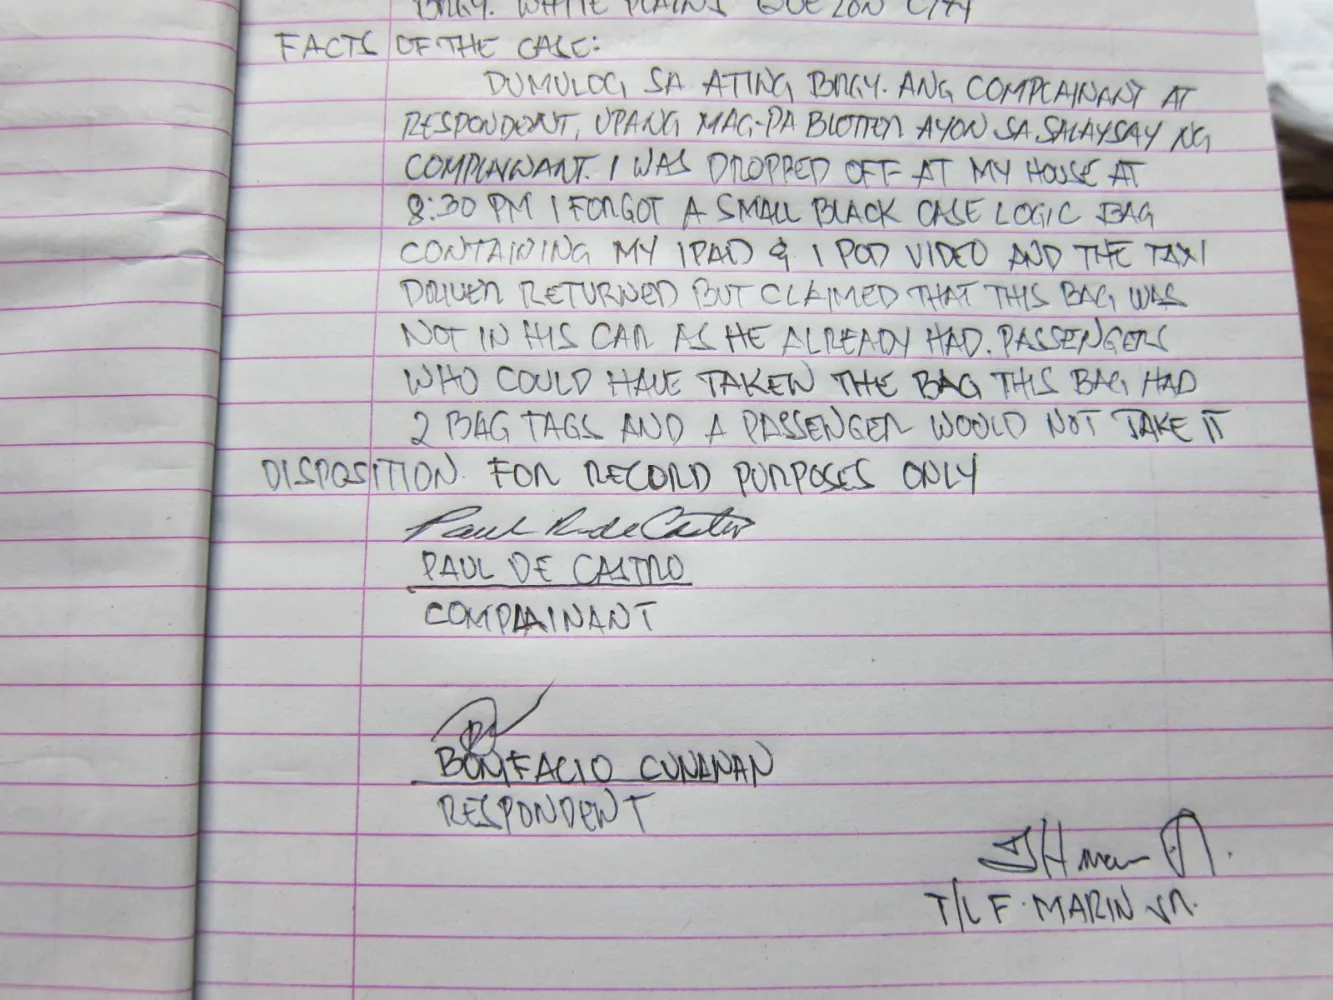 BRGY. WHITE PLAINS QUEZON CITY
FACTS OF THE CASE:
DUMULOG SA ATING BRGY. ANG COMPLAINANT AT
RESPONDENT, UPANG MAG-PA BLOTTER AYON SA SALAYSAY NG
COMPLAINANT. I WAS DROPPED OFF AT MY HOUSE AT
8:30 PM I FORGOT A SMALL BLACK CASE LOGIC BAG
CONTAINING MY IPAD & I POD VIDEO AND THE TAXI
DRIVER RETURNED BUT CLAIMED THAT THIS BAG WAS
NOT IN HIS CAR AS HE ALREADY HAD. PASSENGERS
WHO COULD HAVE TAKEN THE BAG THIS BAG HAD
2 BAG TAGS AND A PASSENGER WOULD NOT TAKE IT
DISPOSITION. FOR RECORD PURPOSES ONLY
Paul R. de Castro
PAUL DE CASTRO
COMPLAINANT
BONIFACIO CUNANAN
RESPONDENT
T/L F. MARIN JR.